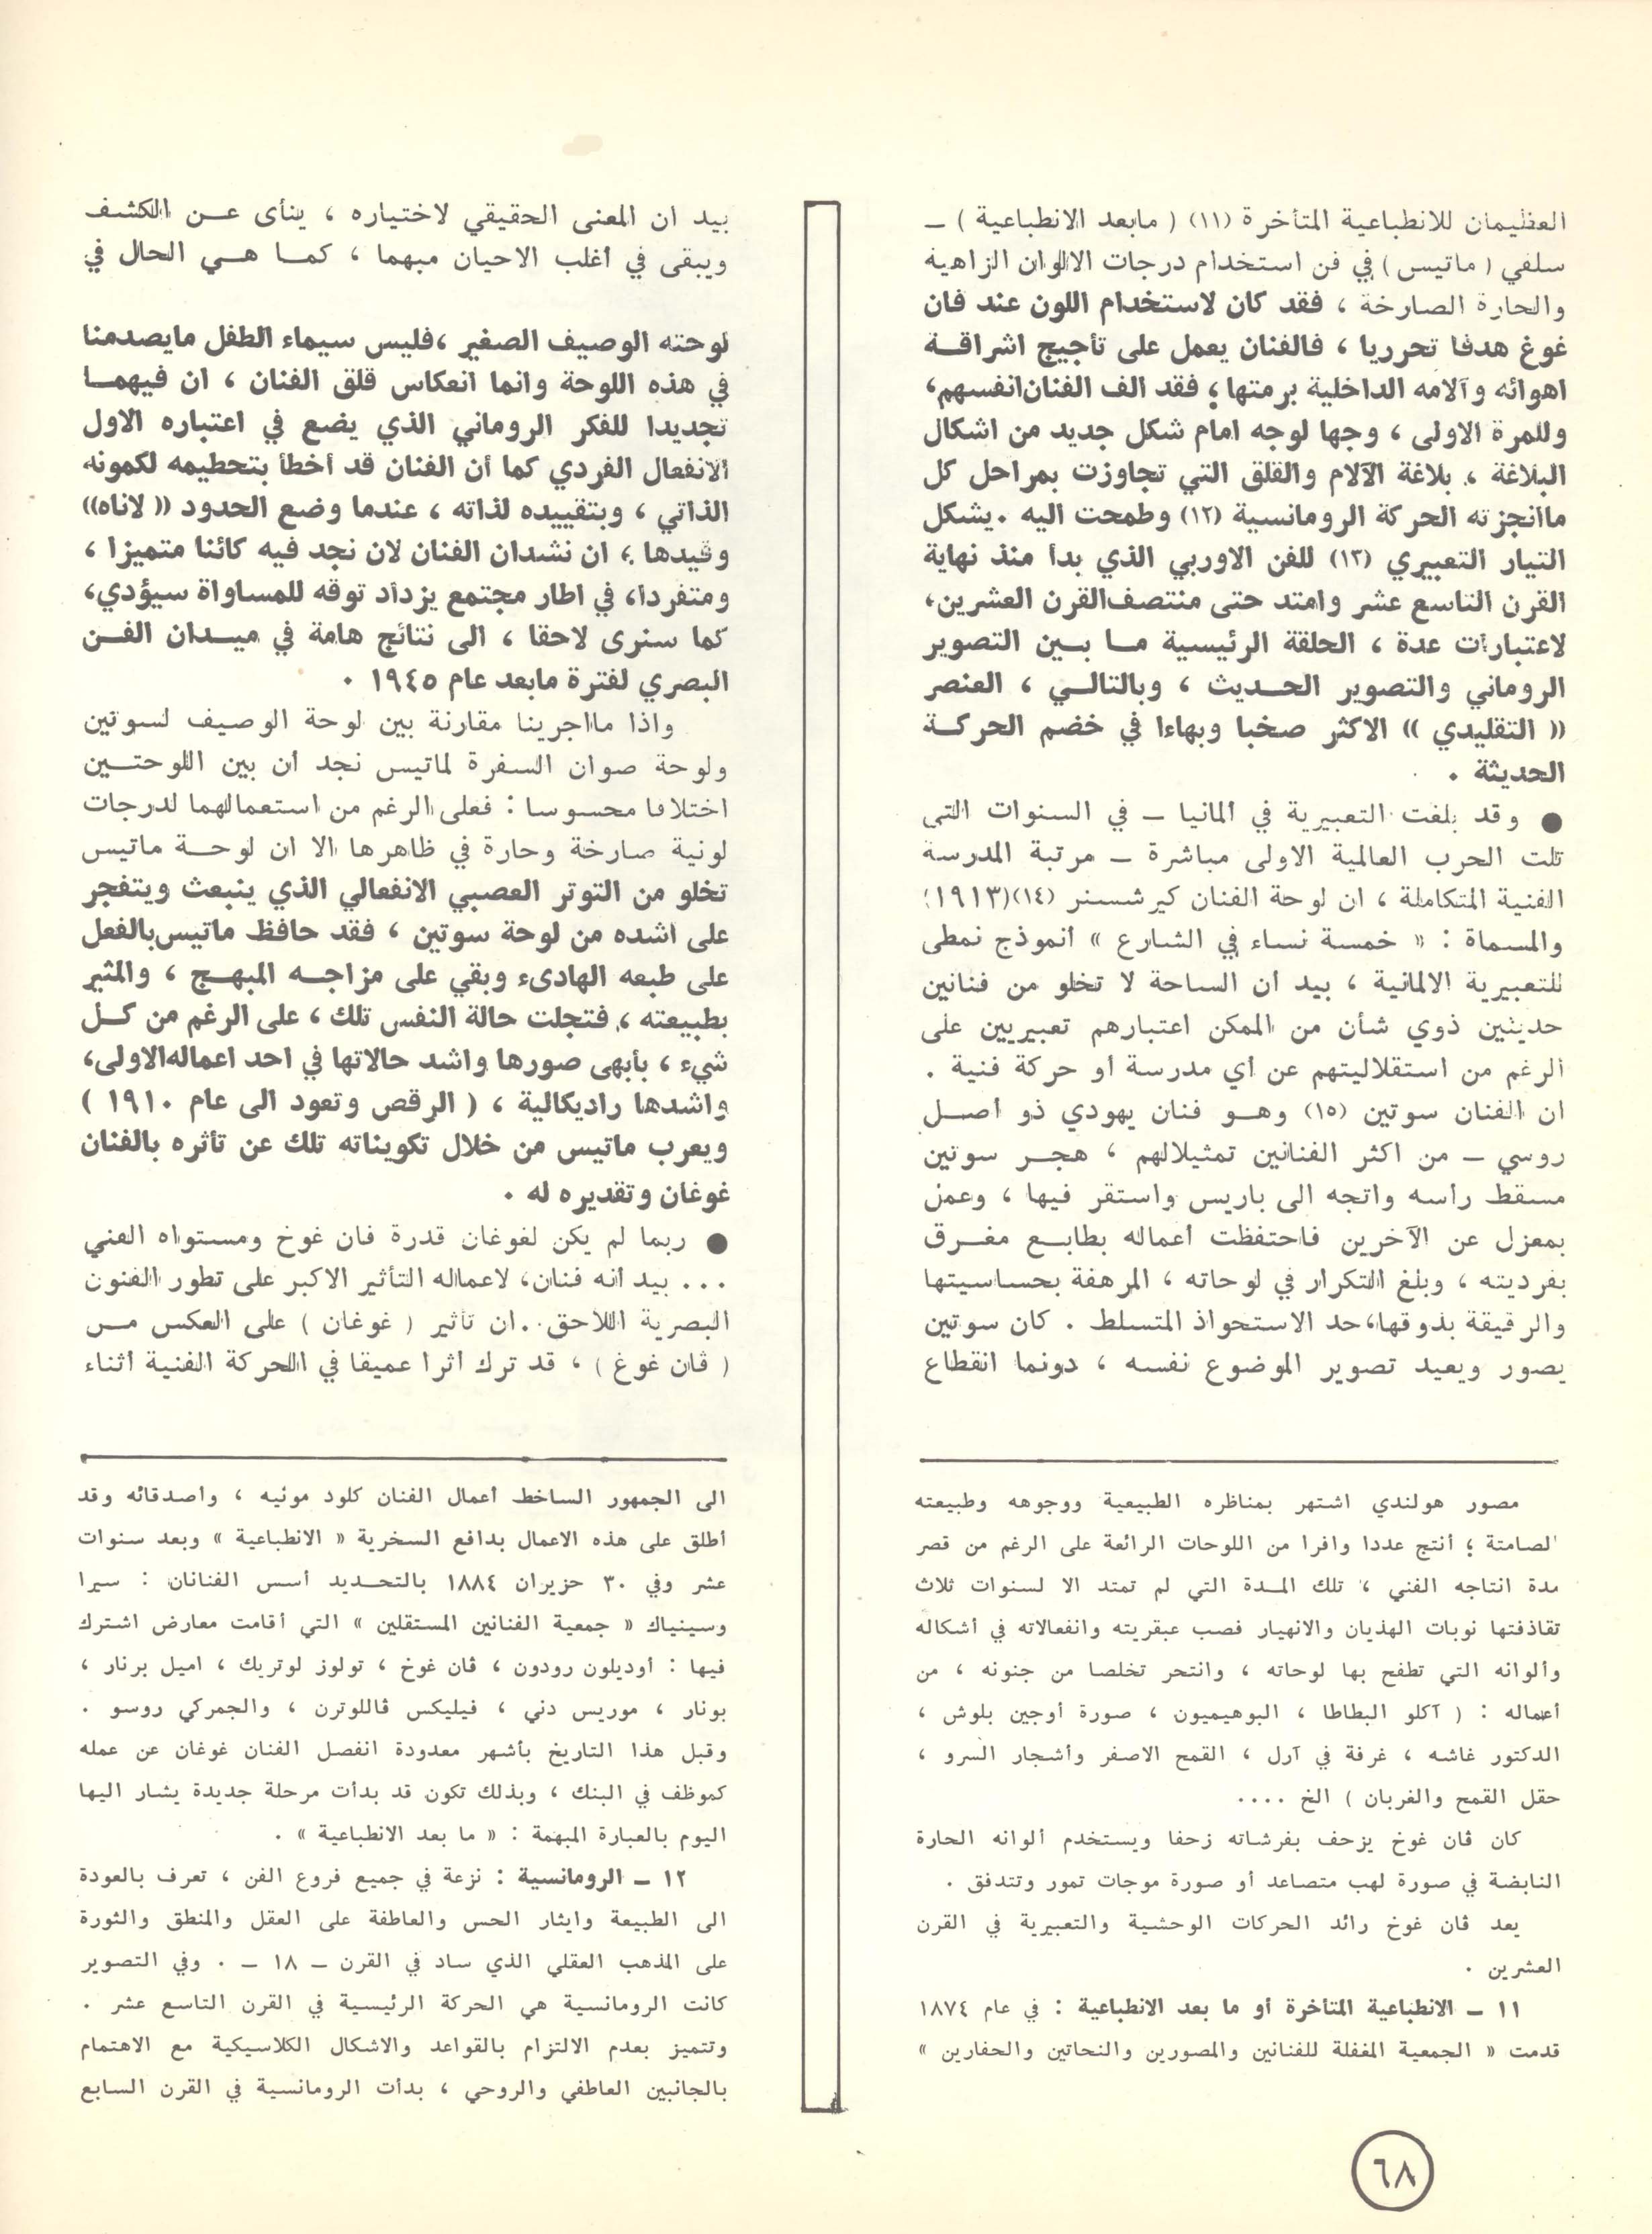 العظيمان للانطباعية المتأخرة (١١) ( مابعد الانطباعية ) ـ
سلفي ( ماتيس ) في فن استخدام درجات الالوان الزاهية
والحارة الصارخة ، فقد كان لاستخدام اللون عند فان
غوغ هدفا تحرريا ، فالفنان يعمل على تأجيج اشراقـة
اهوائه وآلامه الداخلية برمتها ؛ فقد الف الفنان انفسهم ،
وللمرة الاولى ، وجها لوجه امام شكل جديد من اشكال
البلاغة ، بلاغة الآلام والقلق التي تجاوزت بمراحل كل
ماأنجزته الحركة الرومانسية (١٢) وطمحت اليه . يشكل
التيار التعبيري (١٣) للفن الاوربي الذي بدأ منذ نهاية
القرن التاسع عشر وامتد حتى منتصف القرن العشرين ،
لاعتبارات عدة ، الحلقة الرئيسية مـا بـين التصوير
الروماني والتصوير الحـديث ، وبالتالـي ، العنصر
« التقليدي » الاكثر صخبا وبهاءا في خضم الحركـة
الحديثة .
● وقد بلغت التعبيرية في المانيا ـ في السنوات التي
تلت الحرب العالمية الاولى مباشرة ـ مرتبة المدرسة
الفنية المتكاملة ، ان لوحة الفنان كيرشسنر (١٤)(١٩١٣)
والمسماة : « خمسة نساء في الشارع » أنموذج نمطي
للتعبيرية الالمانية ، بيد أن الساحة لا تخلو من فنانين
حديثين ذوي شأن من الممكن اعتبارهم تعبيريين على
الرغم من استقلاليتهم عن أي مدرسة أو حركة فنية .
ان الفنان سوتين (١٥) وهـو فنان يهودي ذو اصـل
روسي ـ من اكثر الفنانين تمثيلالهم ، هجـر سوتين
مسقط رأسه واتجه الى باريس واستقر فيها ، وعمل
بمعزل عن الآخرين فاحتفظت أعماله بطابـع مغـرق
بفرديته ، وبلغ التكرار في لوحاته ، المرهفة بحساسيتها
والرقيقة بذوقها ، حد الاستحواذ المتسلط . كان سوتين
يصور ويعيد تصوير الموضوع نفسه ، دونما انقطاع
مصور هولندي اشتهر بمناظره الطبيعية ووجوهه وطبيعته
الصامتة ؛ أنتج عددا وافرا من اللوحات الرائعة على الرغم من قصر
مدة انتاجه الفني ، تلك المـدة التي لم تمتد الا لسنوات ثلاث
تقاذفتها نوبات الهذيان والانهيار فصب عبقريته وانفعالاته في أشكاله
وألوانه التي تطفح بها لوحاته ، وانتحر تخلصا من جنونه ، من
أعماله : ( آكلو البطاطا ، البوهيميون ، صورة أوجين بلوش ،
الدكتور غاشه ، غرفة في آرل ، القمح الاصفر وأشجار السرو ،
حقل القمح والغربان ) الخ ....
كان ڤان غوخ يزحف بفرشاته زحفا ويستخدم ألوانه الحارة
النابضة في صورة لهب متصاعد أو صورة موجات تمور وتتدفق .
يعد ڤان غوخ رائد الحركات الوحشية والتعبيرية في القرن
العشرين .
١١ ـ الانطباعية المتأخرة أو ما بعد الانطباعية : في عام ١٨٧٤
قدمت « الجمعية المغفلة للفنانين والمصورين والنحاتين والحفارين »
بيد ان المعنى الحقيقي لاختياره ، ينأى عـن الكشف
ويبقى في أغلب الاحيان مبهما ، كمـا هـي الحال في
لوحته الوصيف الصغير ، فليس سيماء الطفل مايصدمنا
في هذه اللوحة وانما انعكاس قلق الفنان ، ان فيهمـا
تجديدا للفكر الروماني الذي يضع في اعتباره الاول
الانفعال الفردي كما أن الفنان قد أخطأ بتحطيمه لكمونه
الذاتي ، وبتقييده لذاته ، عندما وضع الحدود « لاناه »
وقيدها ؛ ان نشدان الفنان لان نجد فيه كائنا متميزا ،
ومتفردا ، في اطار مجتمع يزداد توقه للمساواة سيؤدي ،
كما سنرى لاحقا ، الى نتائج هامة في ميـدان الفـن
البصري لفترة مابعد عام ١٩٤٥ .
واذا مااجرينا مقارنة بين لوحة الوصيف لسوتين
ولوحة صوان السفرة لماتيس نجد أن بين اللوحتـين
اختلافا محسوسا : فعلى الرغم من استعمالهما لدرجات
لونية صارخة وحارة في ظاهرها الا ان لوحـة ماتيس
تخلو من التوتر العصبي الانفعالي الذي ينبعث ويتفجر
على اشده من لوحة سوتين ، فقد حافظ ماتيس بالفعل
على طبعه الهادىء وبقي على مزاجـه المبهـج ، والمثير
بطبيعته ، فتجلت حالة النفس تلك ، على الرغم من كـل
شيء ، بأبهى صورها واشد حالاتها في احد اعماله الاولى ،
واشدها راديكالية ، ( الرقص وتعود الى عام ١٩١٠ )
ويعرب ماتيس من خلال تكويناته تلك عن تأثره بالفنان
غوغان وتقديره له .
● ربما لم يكن لغوغان قدرة فان غوخ ومستواه الفني
... بيد أنه فنان ، لاعماله التأثير الاكبر على تطور الفنون
البصرية اللاحق . ان تأثير ( غوغان ) على العكس مـن
( ڤان غوغ ) ، قد ترك اثرا عميقا في الحركة الفنية أثناء
الى الجمهور الساخط أعمال الفنان كلود مونيه ، وأصدقائه وقد
أطلق على هذه الاعمال بدافع السخرية « الانطباعية » وبعد سنوات
عشر وفي ٣٠ حزيران ١٨٨٤ بالتحـديد أسس الفنانان : سيرا
وسينياك « جمعية الفنانين المستقلين » التي أقامت معارض اشترك
فيها : أوديلون رودون ، ڤان غوخ ، تولوز لوتريك ، اميل برنار ،
بونار ، موريس دني ، فيليكس ڤاللوترن ، والجمركي روسو .
وقبل هذا التاريخ بأشهر معدودة انفصل الفنان غوغان عن عمله
كموظف في البنك ، وبذلك تكون قد بدأت مرحلة جديدة يشار اليها
اليوم بالعبارة المبهمة : « ما بعد الانطباعية » .
١٢ ـ الرومانسية : نزعة في جميع فروع الفن ، تعرف بالعودة
الى الطبيعة وايثار الحس والعاطفة على العقل والمنطق والثورة
على المذهب العقلي الذي ساد في القرن ـ ١٨ ـ . وفي التصوير
كانت الرومانسية هي الحركة الرئيسية في القرن التاسع عشر .
وتتميز بعدم الالتزام بالقواعد والاشكال الكلاسيكية مع الاهتمام
بالجانبين العاطفي والروحي ، بدأت الرومانسية في القرن السابع
٦٨